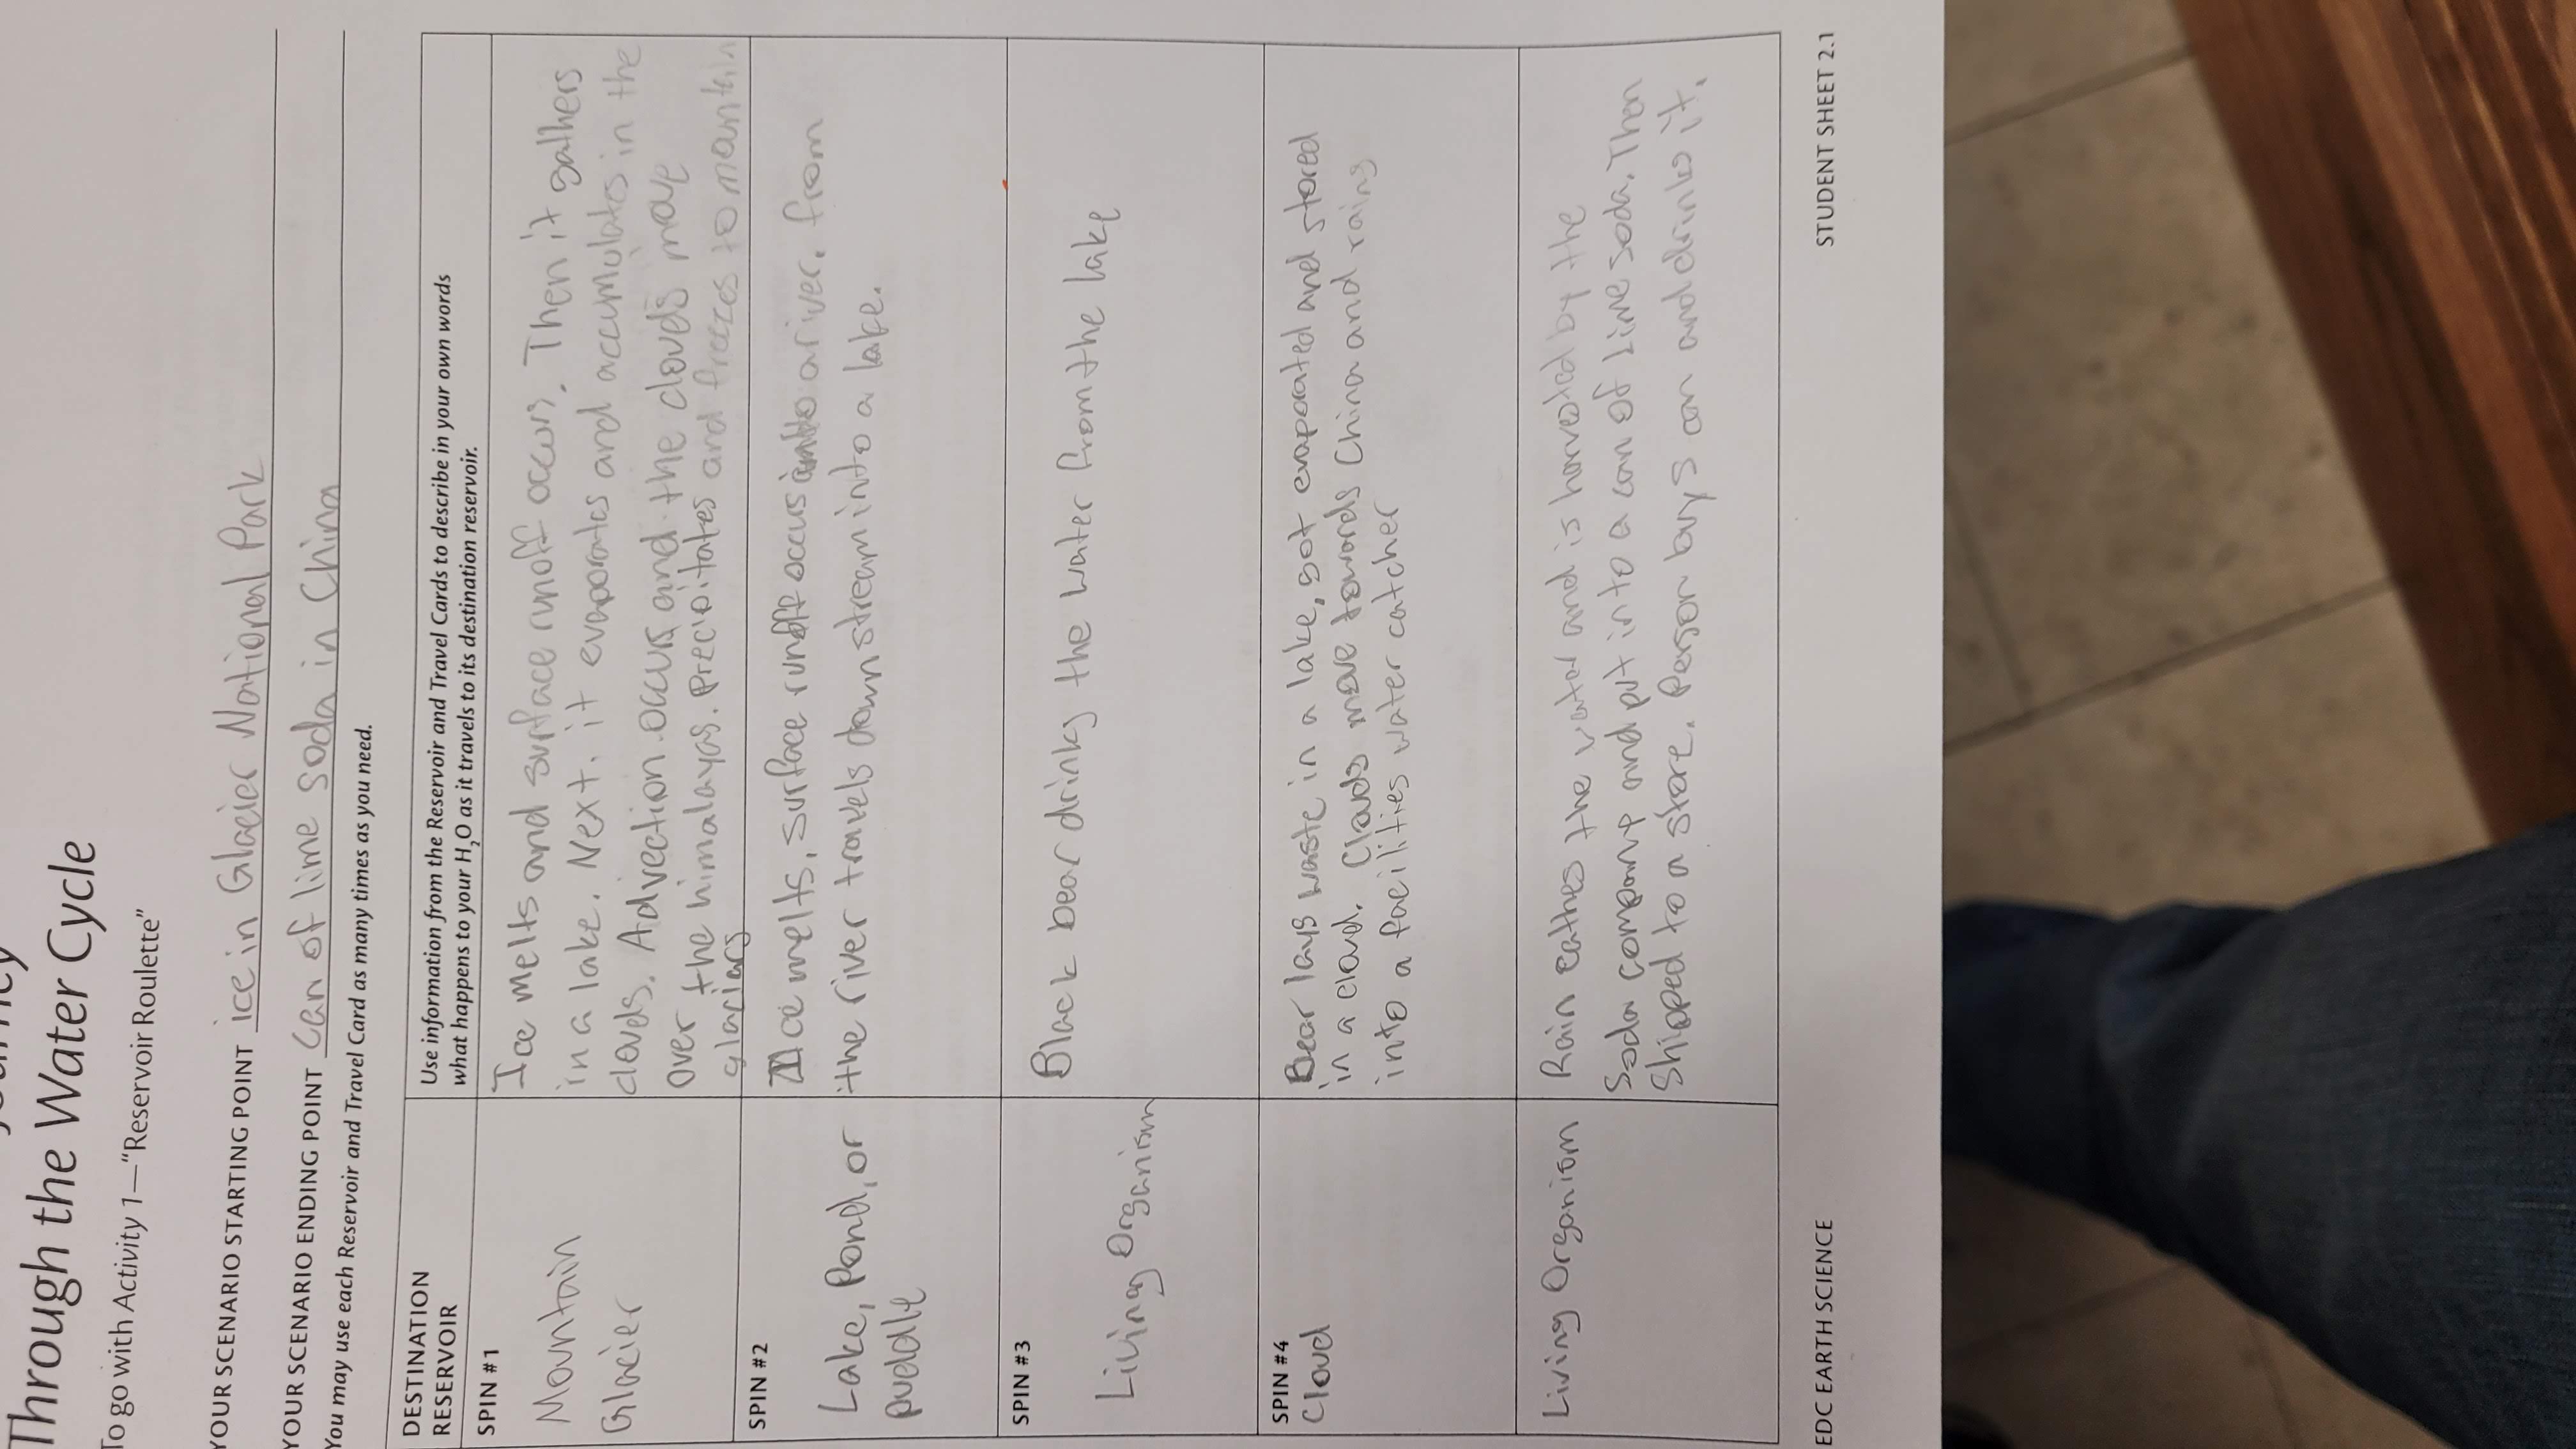 Through the Water Cycle
To go with Activity 1—"Reservoir Roulette"
YOUR SCENARIO STARTING POINT ice in Glacier National Park
YOUR SCENARIO ENDING POINT Can of lime soda in China
You may use each Reservoir and Travel Card as many times as you need.
DESTINATION
RESERVOIR
Use information from the Reservoir and Travel Cards to describe in your own words
what happens to your H₂O as it travels to its destination reservoir.
SPIN #1
Mountain
Glacier
Ice melts and surface runoff occurs. Then it gathers
in a lake. Next, it evaporates and accumulates in the
clouds. Advection occurs and the clouds move
over the himalayas. Precipitates and freezes to mountain
glaciers
SPIN #2
Lake, Pond, or
puddle
Ice melts, surface runoff occurs into a river. from
the river travels downstream into a lake.
SPIN #3
Living Organism
Black bear drinky the water from the lake
SPIN #4
Cloud
Bear lays waste in a lake, got evaporated and stored
in a cloud. Clouds move towards China and rains
into a facilities water catcher
Living Organism
Rain cathes the water and is harvested by the
Soda company and put into a can of Lime soda. Then
Shipped to a store. Person buys can and drinks it.
EDC EARTH SCIENCE
STUDENT SHEET 2.1